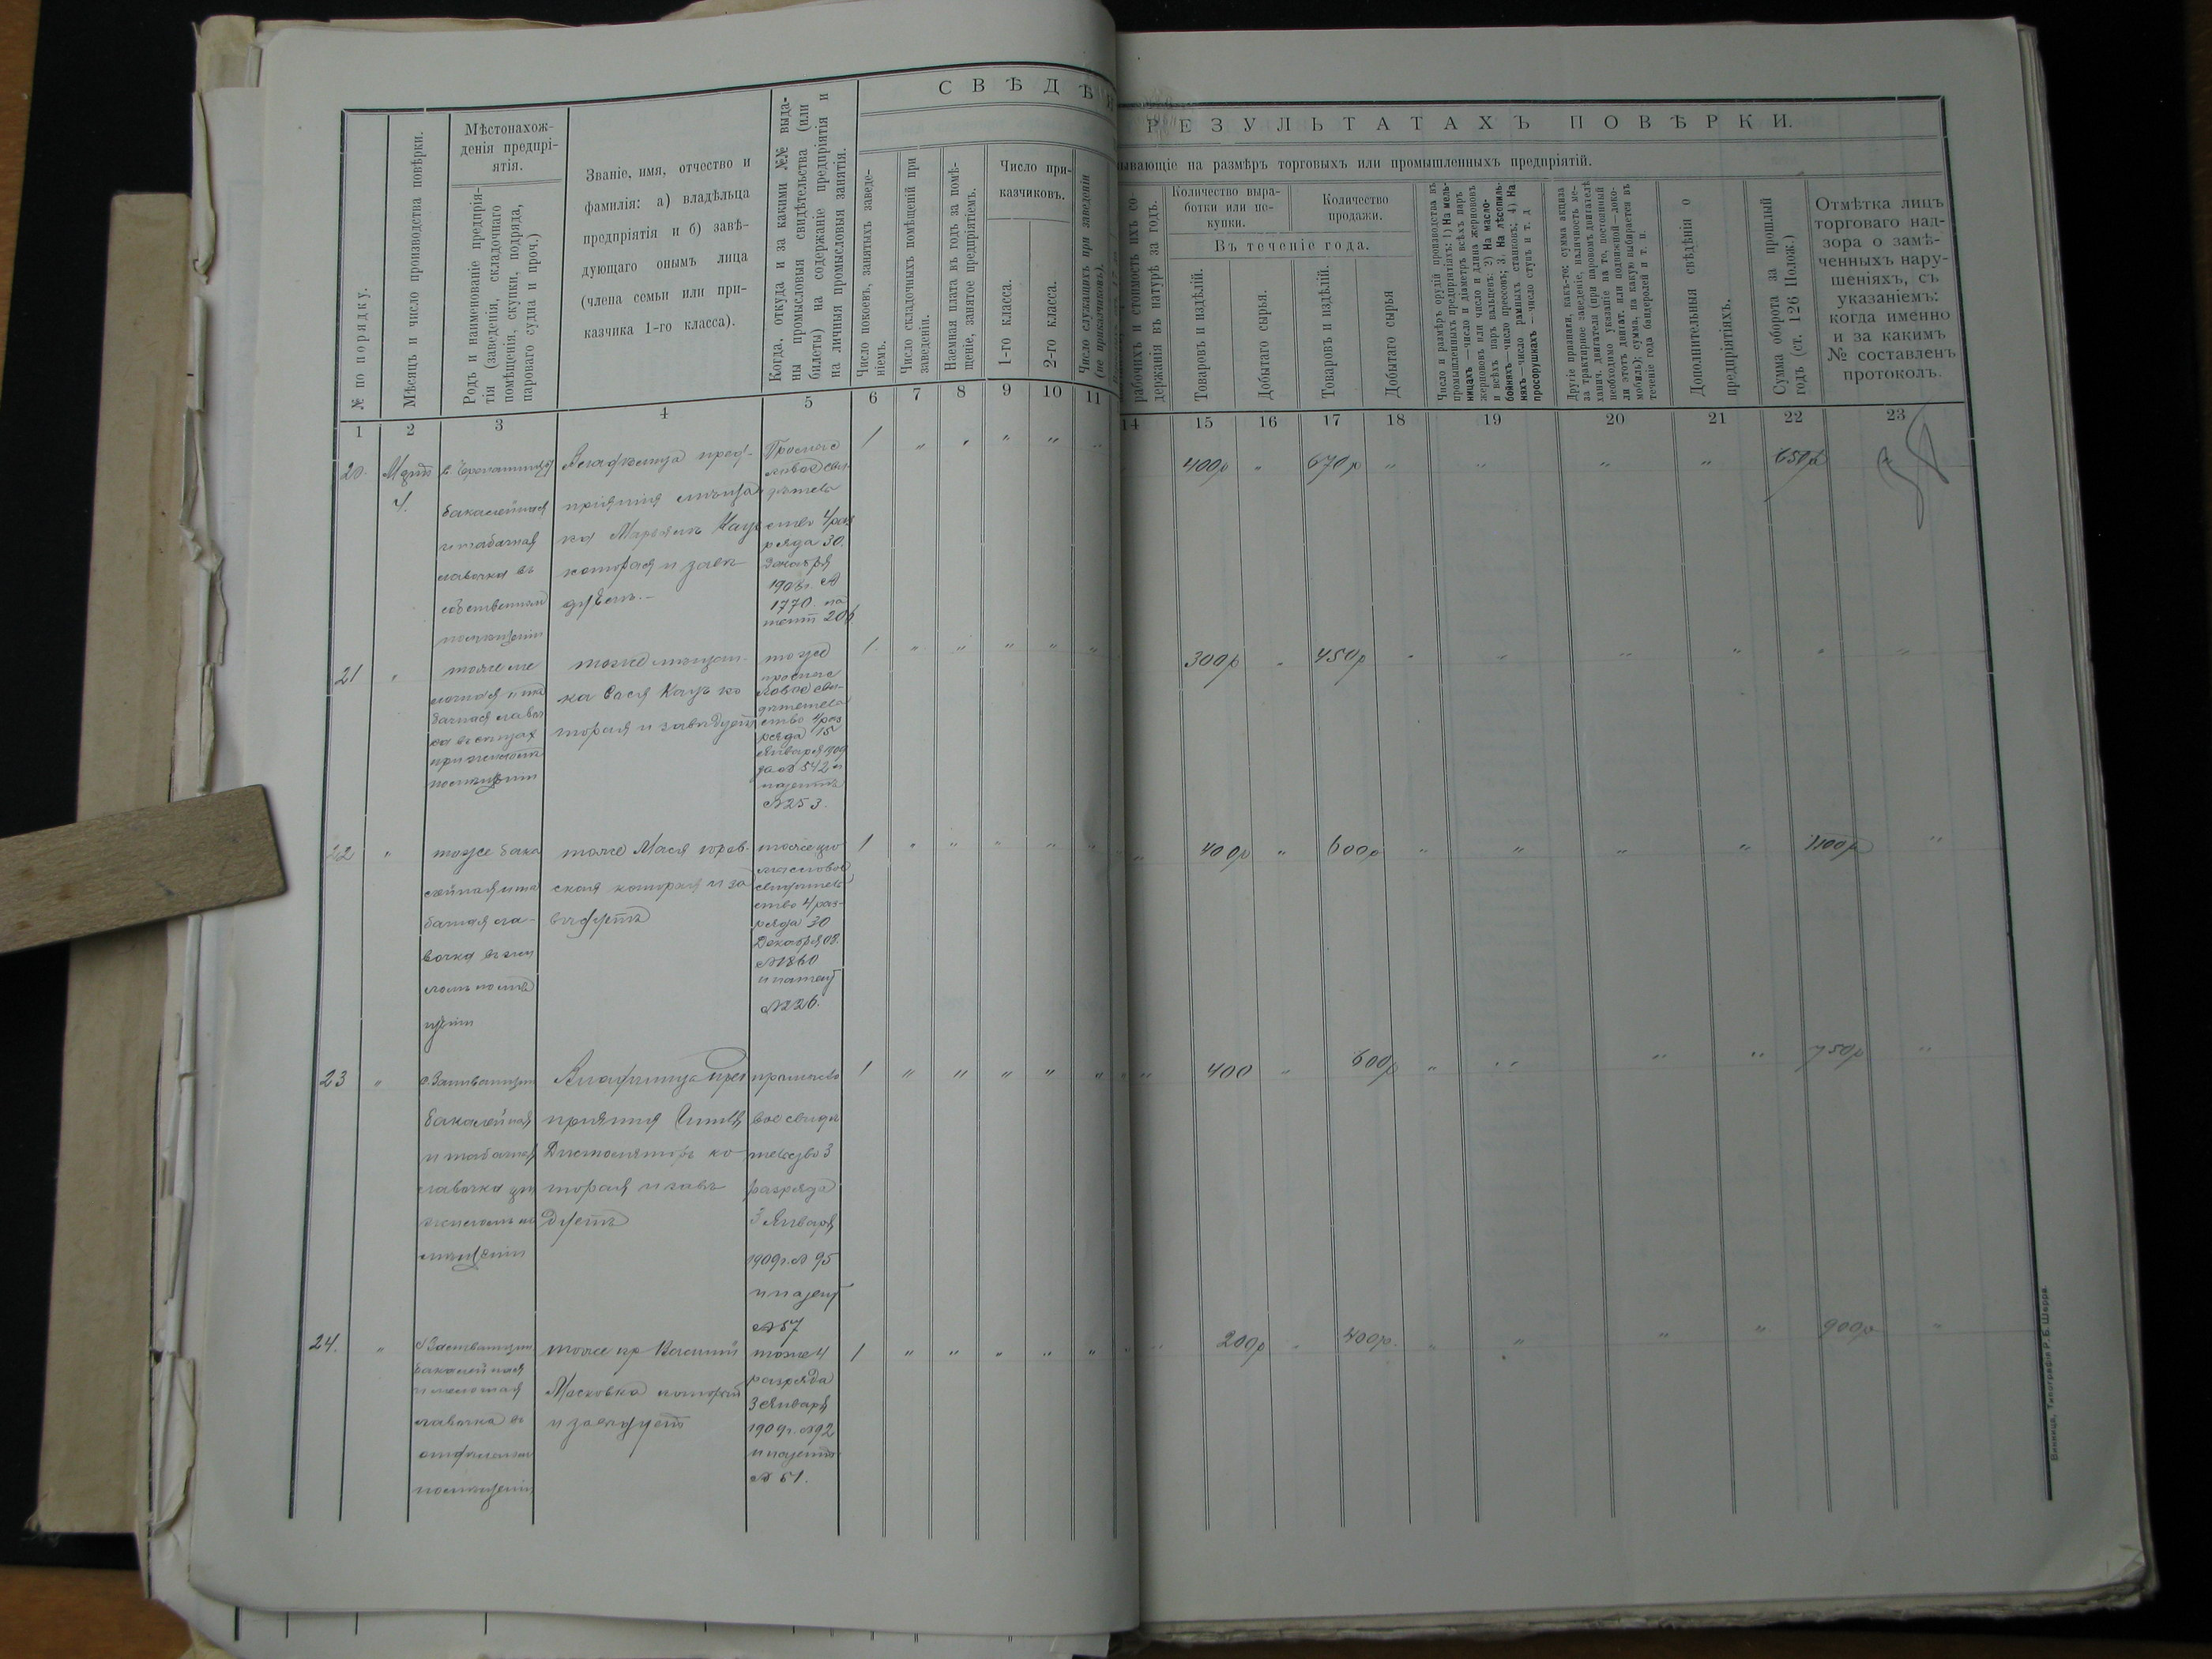 СВѢДѢ
РЕЗУЛЬТАТАХЪ ПОВѢРКИ.
ывающіе на размѣръ торговыхъ или промышленныхъ предпріятій.
№ по порядку.
Мѣсяцъ и число производства повѣрки.
Мѣстонахож-
денія предпрі-
ятія.
Родъ и наименованіе предпрія-
тія (заведенія, складочнаго
помѣщенія, скупки, подряда,
пароваго судна и проч.)
Званіе, имя, отчество и
фамилія: а) владѣльца
предпріятія и б) завѣ-
дующаго онымъ лица
(члена семьи или при-
казчика 1-го класса).
Когда, откуда и за какими №№ выда-
ны промысловыя свидѣтельства (или
билеты) на содержаніе предпріятія и
на личныя промысловыя занятія.
Число покоевъ, занятыхъ заведе-
ніемъ.
Число складочныхъ помѣщеній при
заведеніи.
Наемная плата въ годъ за помѣ-
щеніе, занятое предпріятіемъ.
Число при-
казчиковъ.
1-го класса.
2-го класса.
Число служащихъ при заведеніи
(не приказчиковъ).
рабочихъ и стоимость ихъ со
держанія въ натурѣ за годъ.
Количество выра-
ботки или по-
купки.
Количество
продажи.
Въ теченіе года.
Товаровъ и издѣлій.
Добытаго сырья.
Товаровъ и издѣлій.
Добытаго сырья
Число и размѣръ орудій производства въ
промышленныхъ предпріятіяхъ: 1) На мель-
ницахъ—число и діаметръ всѣхъ паръ
жернововъ или число и длина жернововъ
и всѣхъ паръ вальцевъ: 2) На масло-
бойняхъ—число прессовъ; 3. На лѣсопиль-
няхъ—число рамныхъ станковъ; 4) На
просорушкахъ—число ступъ и т. д
Другіе признаки, какъ-то: сумма акциза
за трактирное заведеніе, наличность ме-
ханич. двигателя (при паровомъ двигателѣ
необходимо указаніе на то, постоянный
ли этотъ двигат. или подвижной—локо-
мобиль); сумма, на какую выбирается въ
теченіе года бандеролей и т. п.
Дополнительныя свѣдѣнія о
предпріятіяхъ.
Сумма оборота за прошлый
годъ (ст. 126 Полож.)
Отмѣтка лицъ
торговаго над-
зора о замѣ-
ченныхъ нару-
шеніяхъ, съ
указаніемъ:
когда именно
и за какимъ
№ составленъ
протоколъ.
1 2 3 4 5 6 7 8 9 10 11 14 15 16 17 18 19 20 21 22 23
20. Мартъ
4.
бакалейная
и табачная
лавочка въ
собственномъ
помѣщеніи
Владѣлица пред-
пріятія мѣщан
ка Марьямъ Кацъ
которая и завѣ
дуетъ.
Промысло
вое сви
дѣтель
ство 4 раз
ряда 30.
Декабря
1908г. №
1770. па
тент 206.
1 " " " " " 400р " 670р " " " " 650р "
21 "
тоже ме
лочная и та
бачная лавоч
ка въ сѣнях
при жиломъ
помѣщеніи
тоже мѣщан-
ка Сася Кацъ ко
торая и завѣдуетъ
тоже
промысло
вое сви-
дѣтель
ство 4 раз
ряда 15
Января 1909
за № 542 и
патентъ
№ 253.
1 " " " " " 300р " 450р " " " " " "
22 "
тоже бака
лейная и та
бачная ла-
вочка въ жи
ломъ помѣ
щеніи
тоже Мася
которая и за
вѣдуетъ
тоже про
мысловое
свидѣтель
ство 4 раз-
ряда 30
Декабря 08.
№ 1860
и патент
№ 226.
1 " " " " " " 400р " 600р " " " " 1100р "
23 "
бакалейная
и табачная
лавочка при
жиломъ по
мѣщеніи
Владѣлица пред
пріятія
ко
торая и завѣ
дуетъ
промысло
вое свидѣ
тельство 3
разряда
3 Января
1909г. № 95
и патент
№ 57
1 " " " " " " 400 " 600р " " " " 750р "
24. "
бакалейная
и мелочная
лавочка въ
отдѣльном
помѣщеніи
тоже кр. Василий
Масковка который
и завѣдуетъ
тоже 4
разряда
3 Января
1909г. № 92
и патентъ
№ 51.
1 " " " " " " 200р " 400р. " " " " 900р "
Винница, Типографія Р. Б. Шерра